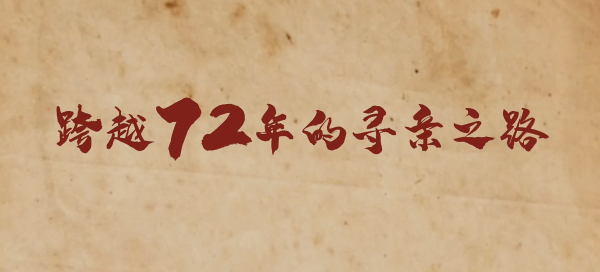 跨越72年的寻亲之路